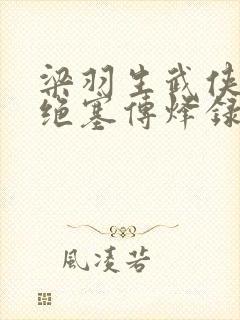 梁羽生武侠
绝塞傳烽録
風凌若